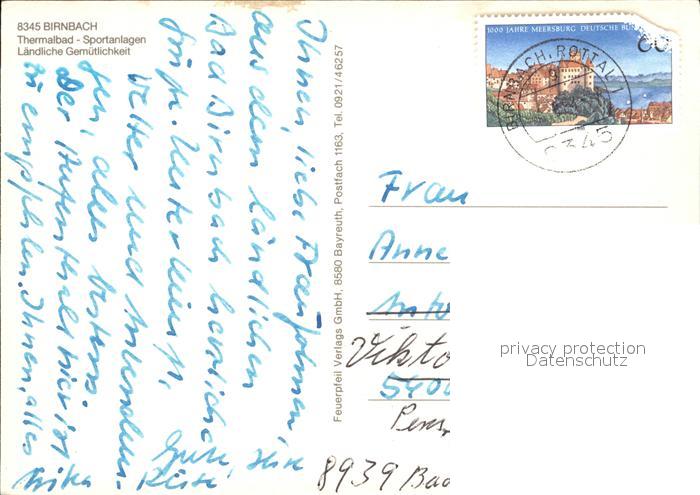 8345 BIRNBACH
Thermalbad - Sportanlagen
Ländliche Gemütlichkeit
Ihnen, liebe Frau
aus dem ländlichen
Bad Birnbach herzliche
Grüße. Unterkunft,
Wetter und
gen, alles bestens.
Der Aufenthalt hier ist
zu empfehlen. Ihnen, alles
Gute,
Erika
Feuerpfeil Verlags GmbH, 8580 Bayreuth, Postfach 1163, Tel. 0921/46257
1000 JAHRE MEERSBURG DEUTSCHE BUN
60
BIRNBACH, ROTTAL 1
8345
Frau
Anne
Vikto
5400
Pens
8939 Bad
privacy protection
Datenschutz